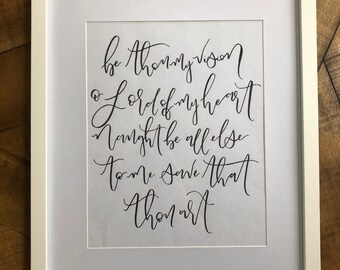 be thou my vision
o Lord of my heart
naught be all else
to me save that
thou art